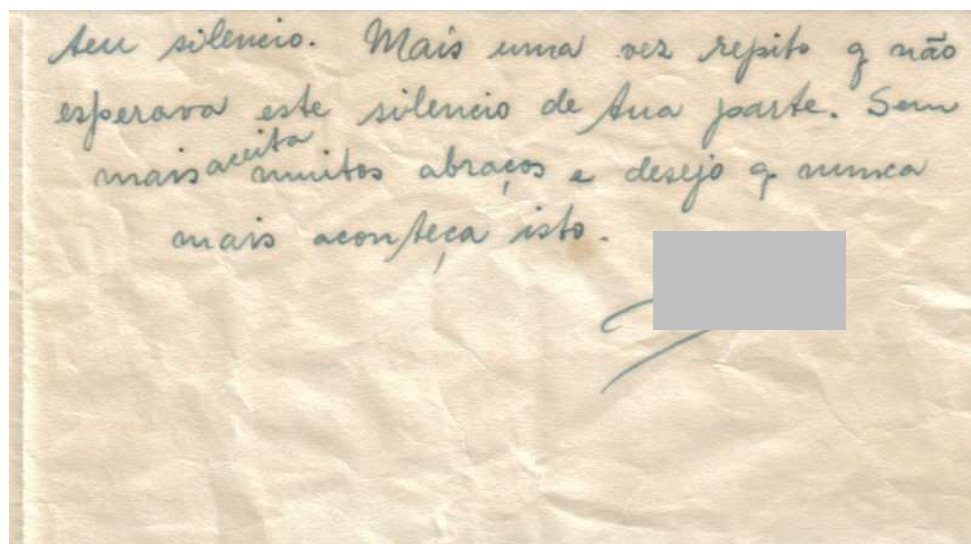 teu silencio. Mais uma vez repito q não
esperava este silencio de tua parte. Sem
mais aceita muitos abraços e desejo q nunca
mais aconteça isto.